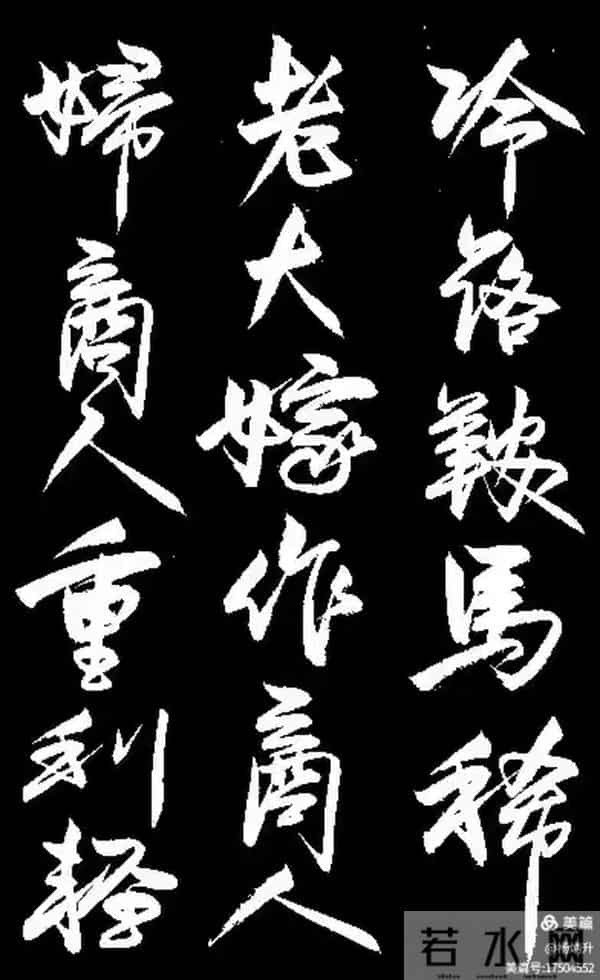 冷落鞍馬稀
老大嫁作商人
婦商人重利輕
美篇
若水网
美篇号:17504552